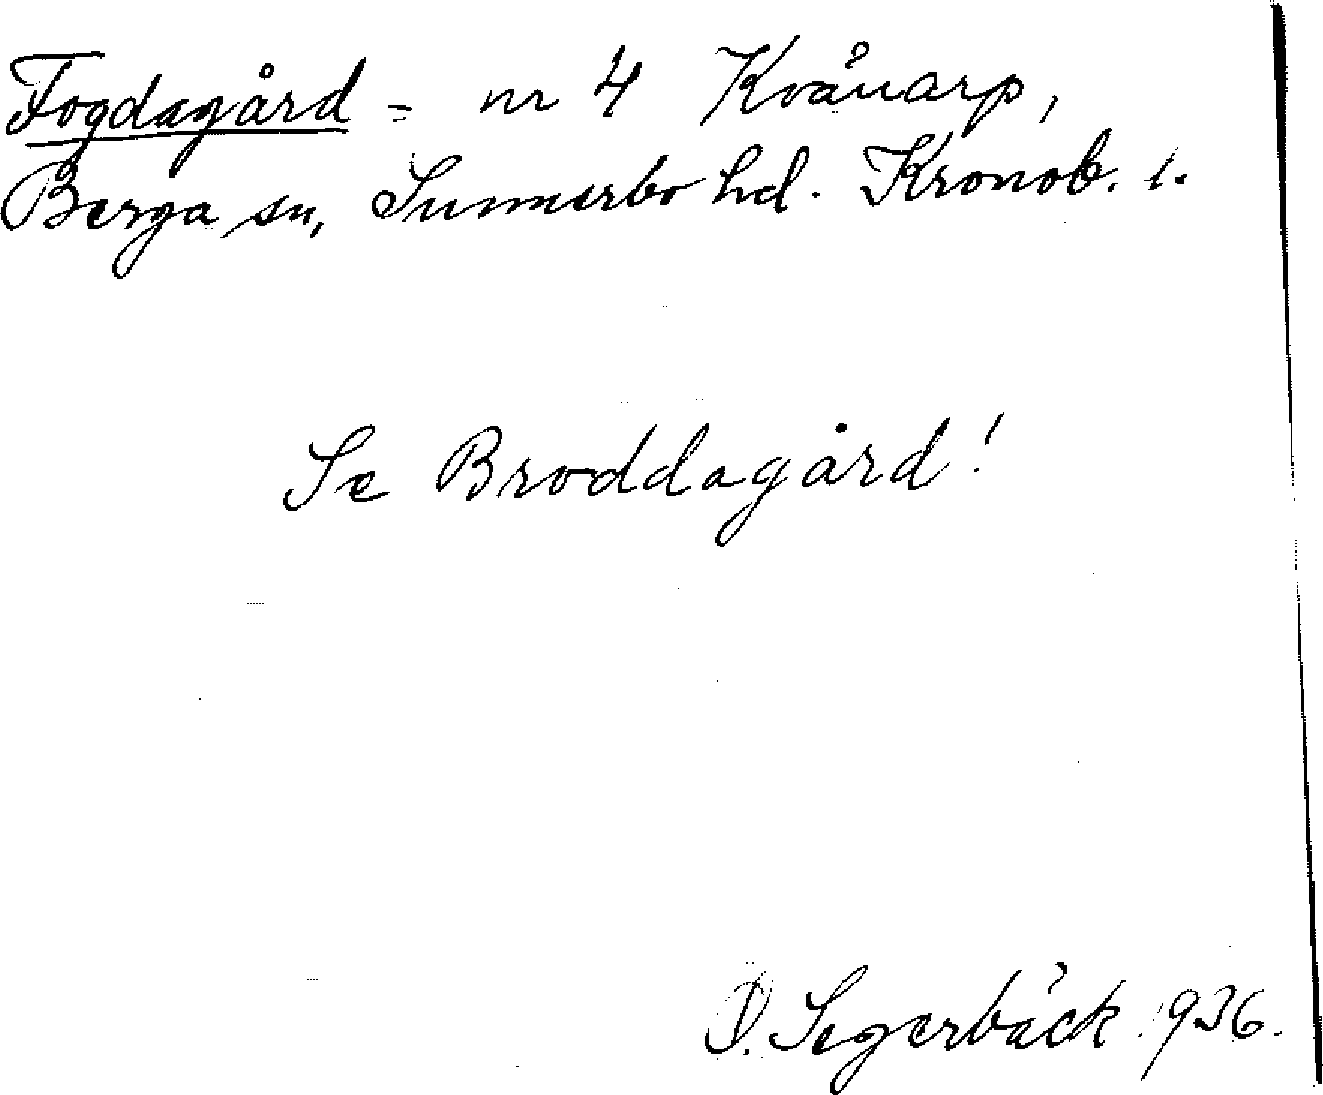 Fogdagård = nr 4 Kvänarp,
Berga sn, Sunnerbo hd. Kronob. l.
Se Broddagård!
Segerbäck 1936.